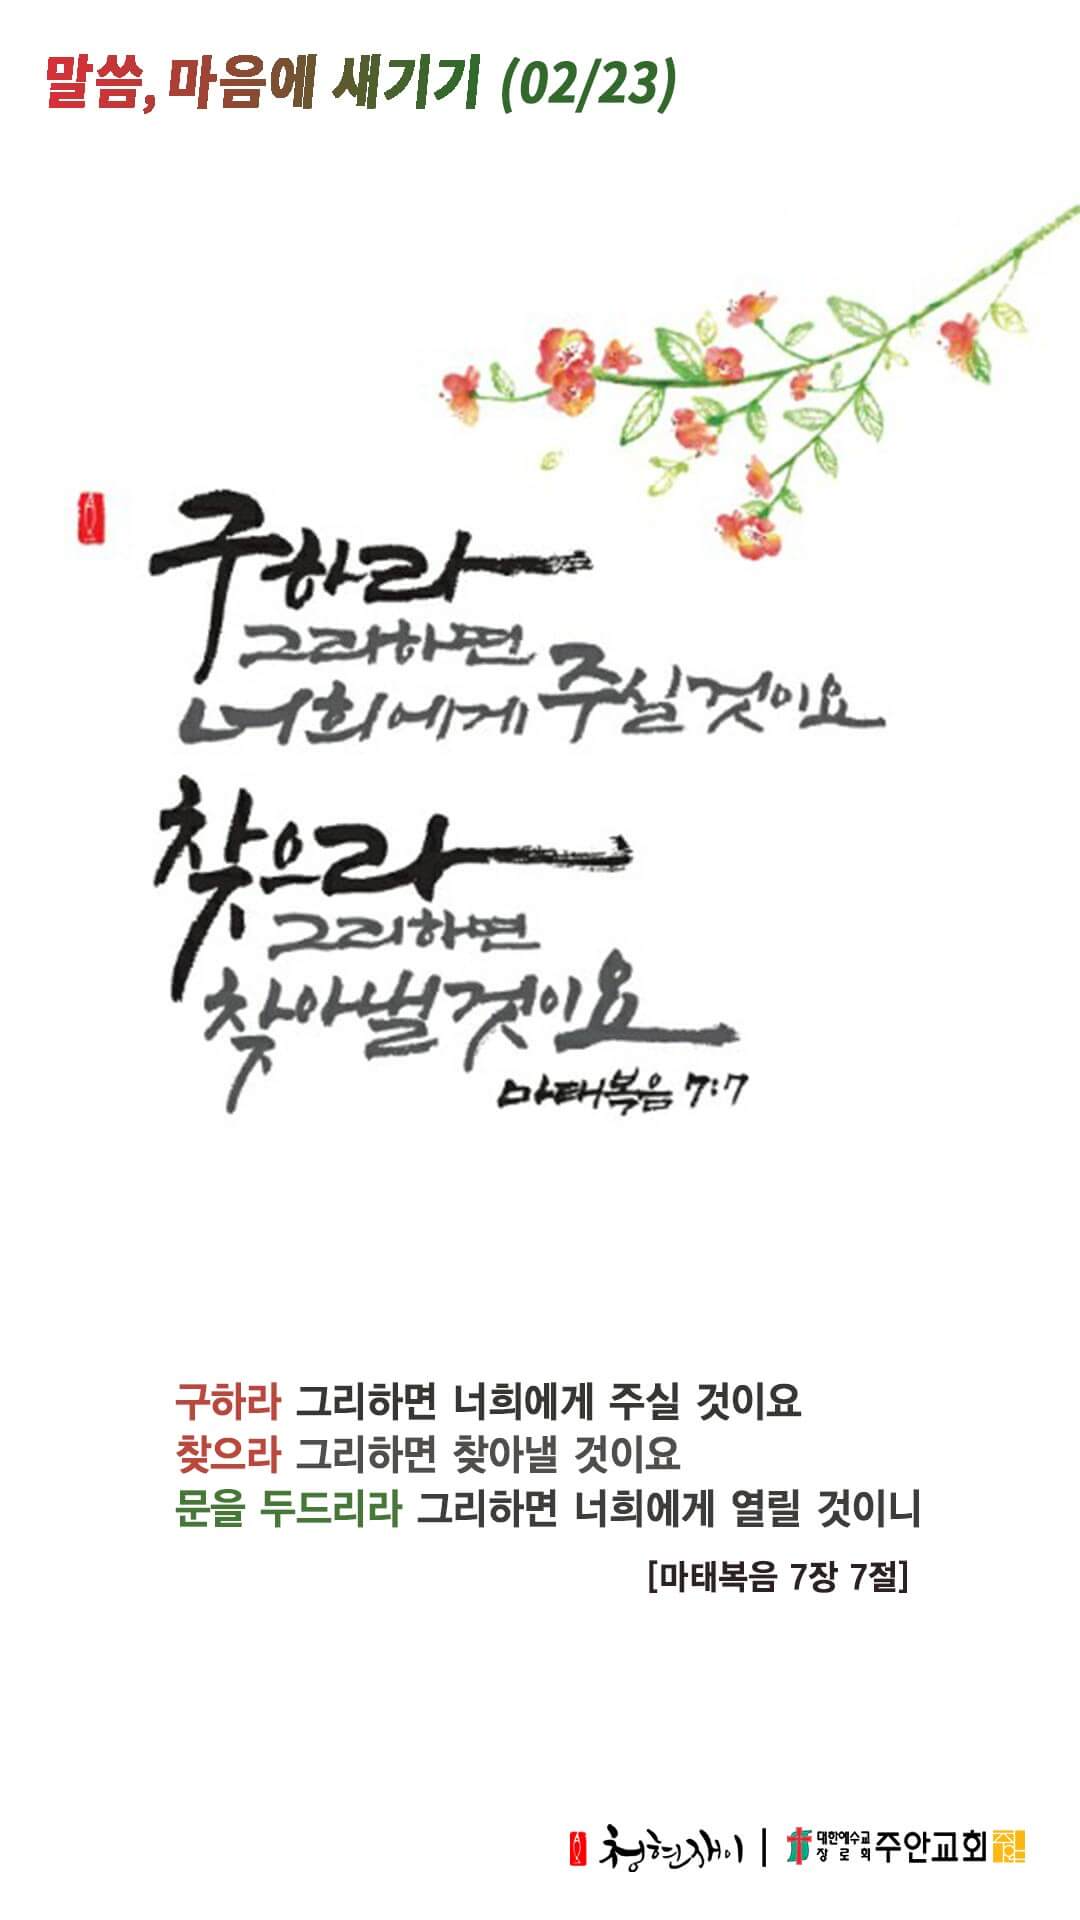 말씀, 마음에 새기기 (02/23)
구하라
그리하면
너희에게 주실것이요
찾으라
그리하면
찾아낼것이요
마태복음 7:7
구하라 그리하면 너희에게 주실 것이요
찾으라 그리하면 찾아낼 것이요
문을 두드리라 그리하면 너희에게 열릴 것이니
[마태복음 7장 7절]
청현재이 | 대한예수교 장로회 주안교회